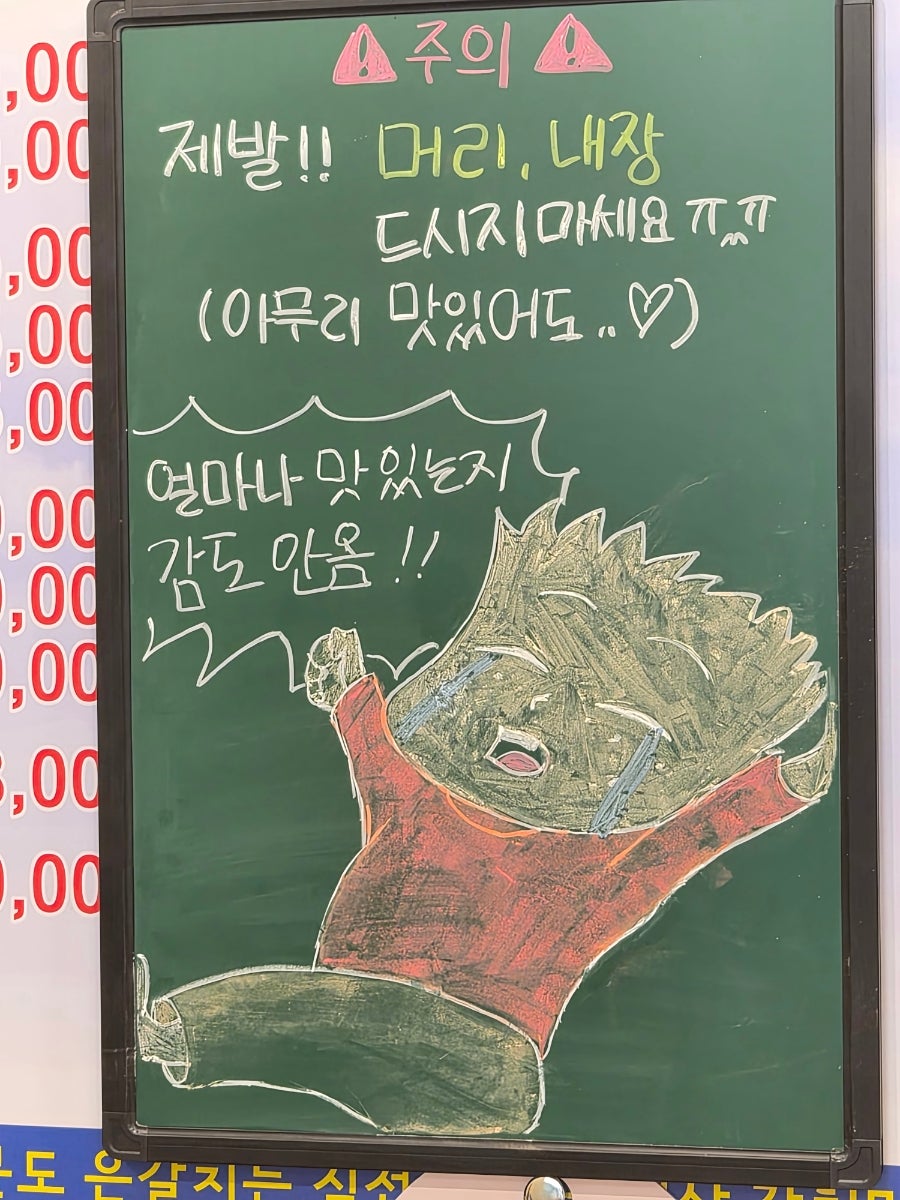 주의
제발!! 머리, 내장
드시지 마세요 ㅠ^^ㅠ
(아무리 맛있어도..♡)
얼마나 맛있는지
감도 안옴!!
,00
,00
,00
,00
,00
,00
,00
,00
,00
,00
도 은갈치는